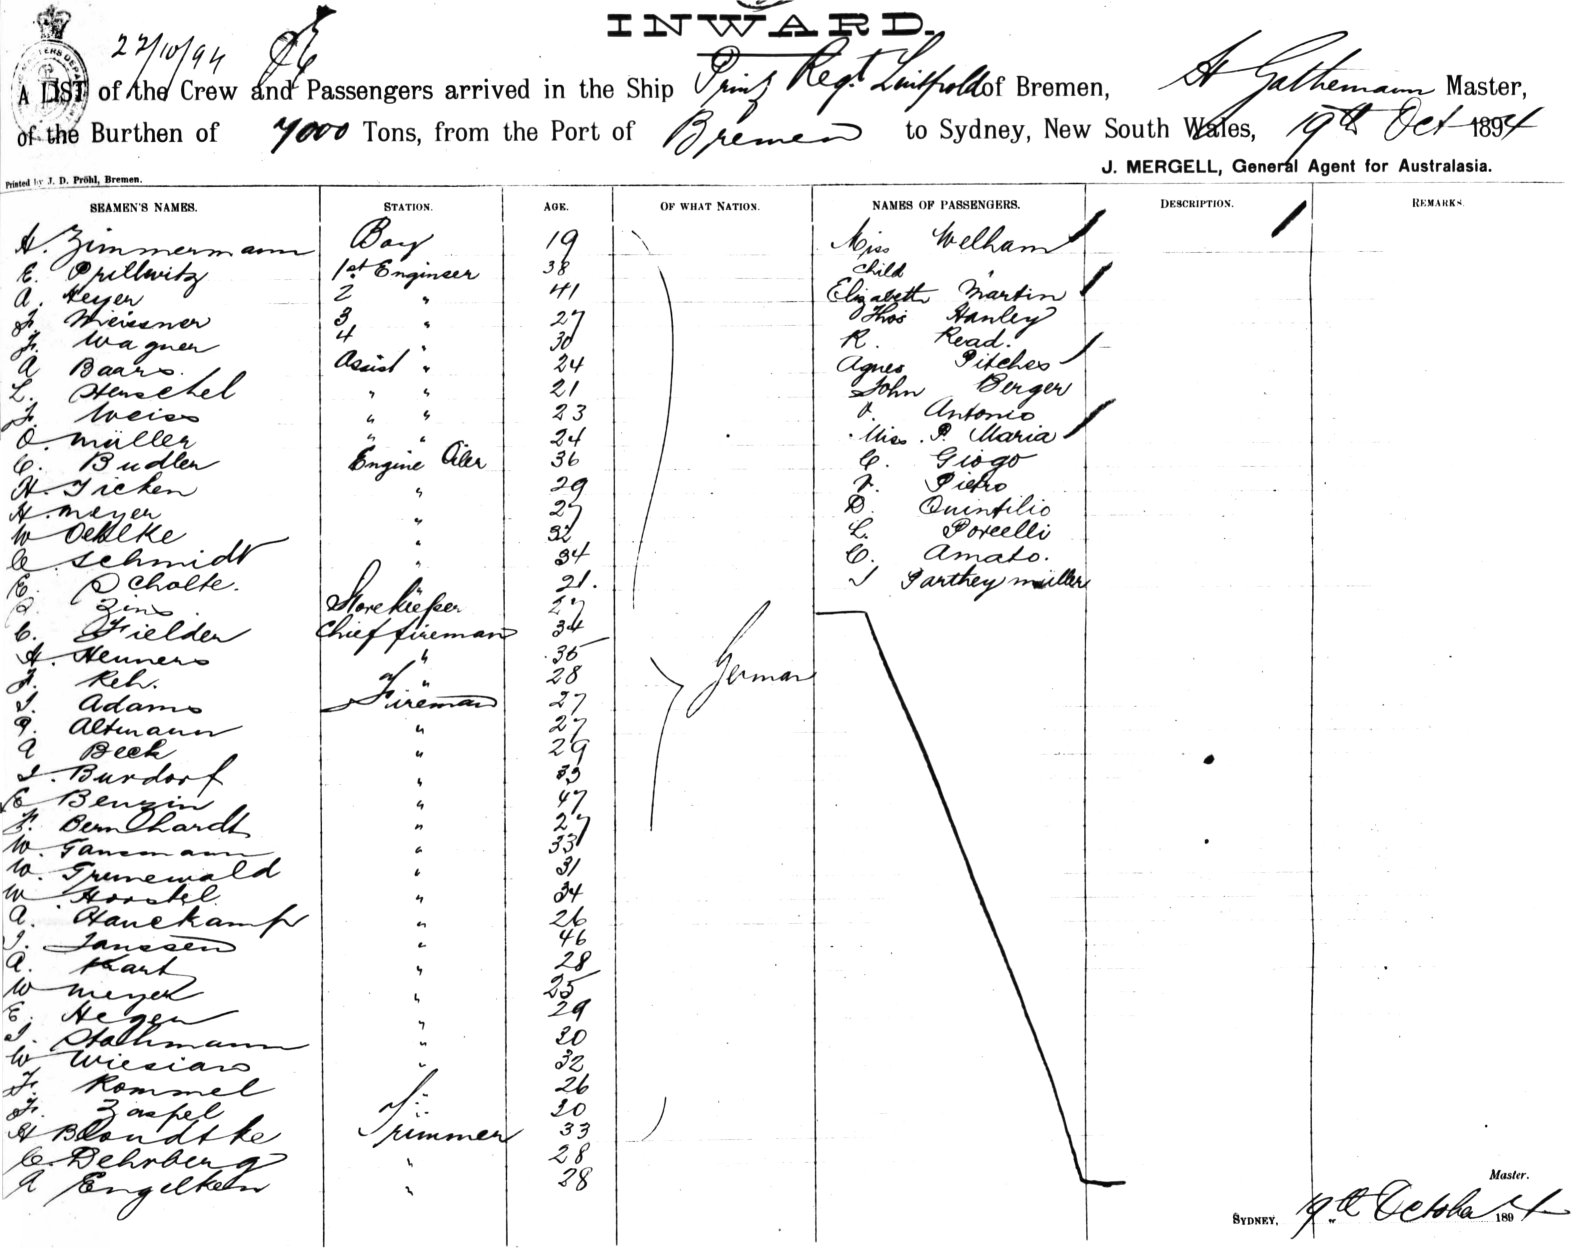 INWARD.
22/10/94
A LIST of the Crew and Passengers arrived in the Ship Prinz Regt Luitpold of Bremen, H Gathemann Master,
of the Burthen of 7000 Tons, from the Port of Bremen to Sydney, New South Wales, 19th Oct 1894
J. MERGELL, General Agent for Australasia.
Printed by J. D. Pröhl, Bremen.
SEAMEN'S NAMES. STATION. AGE. OF WHAT NATION. NAMES OF PASSENGERS. DESCRIPTION. REMARKS.
H. Zimmermann Boy 19 Miss Welham
E. Prillwitz 1st Engineer 38 Child "
A. Heyer 2 " 41 Elizabeth Martin
F. Meissner 3 " 27 Thos Hanley
F. Wagner 4 " 30 R. Read.
A Baars. Assist " 24 Agnes Pitches
L. Herschel " " 21 John Berger
F. Weiss " " 23 V. Antonio
O. Müller " " 24 Miss. P. Maria
C. Budler Engine Oiler 36 C. Giogo
H. Ticken " 29 V. Pietro
H. Meyer " 27 D. Quintilio
W Oehlke " 32 L. Porcelli
C Schmidt " 34 C. Amato.
E. Scholte. " 21. J Partheymüller
Zins Storekeeper 27
C. Fielder Chief fireman 34
H. Henners " 35
F. Reh. " 28 German
J. Adams Fireman 27
P. Altmann " 27
A Beck " 29
J. Burdorf " 33
E Benzin " 47
F. Bernhardt " 27
W. Gansmann " 33
W. Grunewald " 31
W Horstel " 34
A. Hanekamp " 26
J. Janssen " 46
A. Kart " 28
W Meyer " 25
E. Hegen " 29
J. Stollmann " 30
W Wiesians " 32
F. Rommel " 26
F. Zaspel " 30
H Blondtke Trimmer 33
C. Dehrberg " 28
A Engelken " 28
Master.
SYDNEY, 19th October 1894